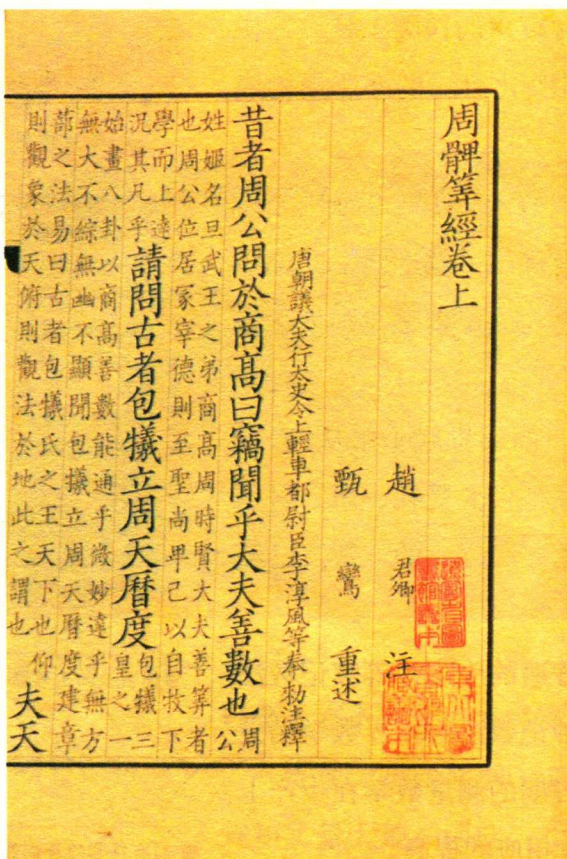 周髀筭經卷上
趙君卿注
甄鸞重述
唐朝議大夫行太史令上輕車都尉臣李淳風等奉勑注釋
昔者周公問於商高曰竊聞乎大夫善數也周公
姓姬名旦武王之弟商高周時賢大夫善筭者
也周公位居冢宰德則至聖尚卑己以自牧下
學而上達況其凡乎請問古者包犧立周天暦度包犧三皇之一
始畫八卦以商高善數能通乎微妙達乎無方
無大不綜無幽不顯聞包犧立周天暦度建章
蔀之法易曰古者包犧氏之王天下也仰
則觀象於天俯則觀法於地此之謂也夫天